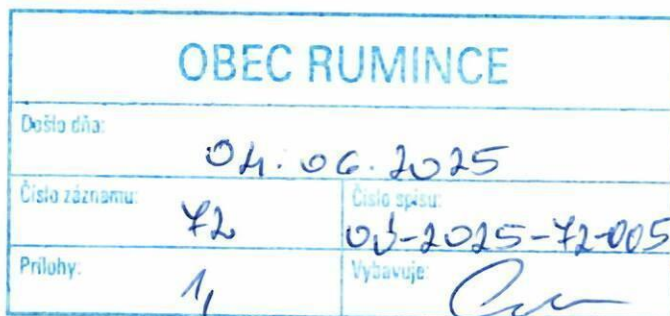 OBEC RUMINCE
Došlo dňa:
04. 06. 2025
Číslo záznamu:
72
Číslo spisu:
OJ-2025-72-005
Prílohy:
1,
Vybavuje: